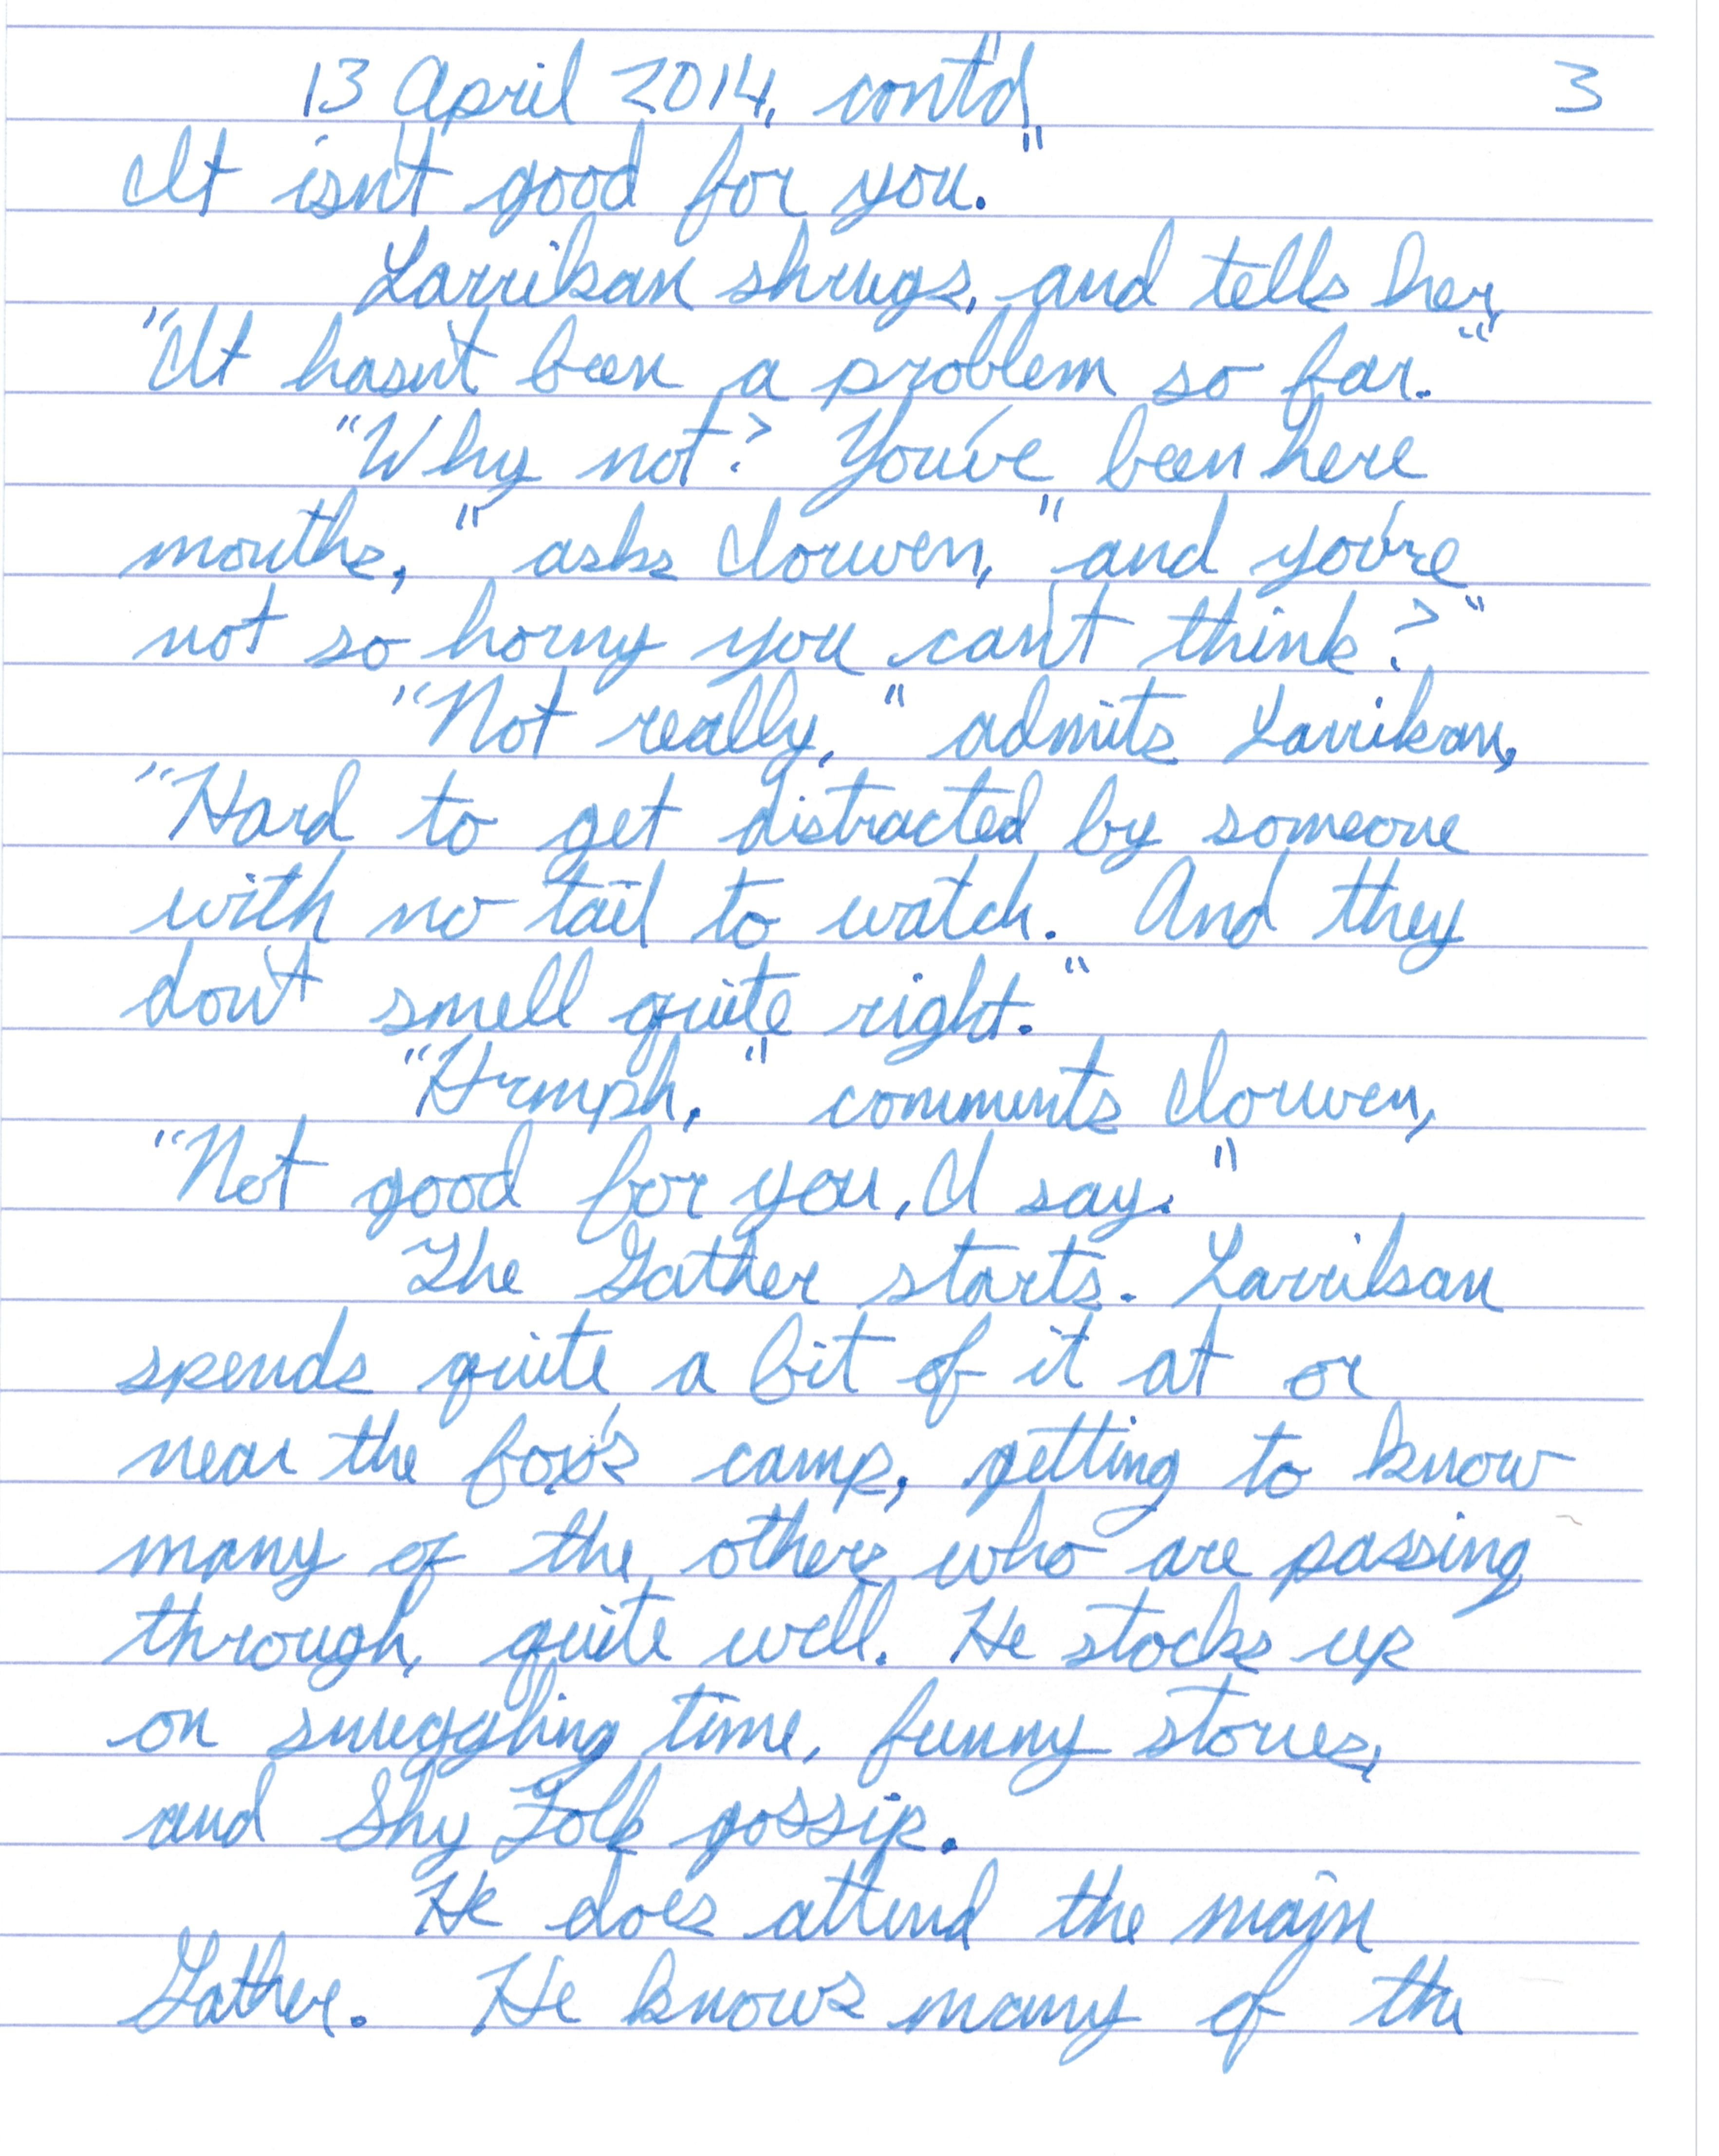 13 April 2014, cont'd, 3
It isn't good for you."
Larrikan shrugs, and tells her,
"It hasn't been a problem so far."
"Why not? You've been here
months," asks Iorwen, "and you're
not so horny you can't think?"
"Not really," admits Larrikan,
"Hard to get distracted by someone
with no tail to watch. And they
don't smell quite right."
"Hrmph," comments Iorwen,
"Not good for you, I say."
The Gather starts. Larrikan
spends quite a bit of it at or
near the fox's camp, getting to know
many of the others who are passing
through, quite well. He stocks up
on snuggling time, funny stories,
and Shy Folk gossip.
He does attend the main
Gather. He knows many of the